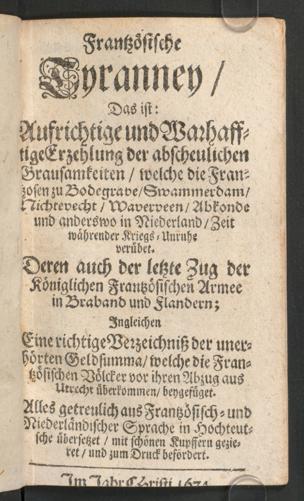 Frantzösische
Tyranney /
Das ist:
Aufrichtige und Warhaff-
tige Erzehlung der abscheulichen
Grausamkeiten / welche die Fran-
zosen zu Bodegrave / Swammerdam /
Nichtevecht / Waverveen / Abkonde
und anderswo in Niederland / Zeit
währender Kriegs-Unruhe
verübet.
Deren auch der letzte Zug der
Königlichen Frantzösischen Armee
in Braband und Flandern;
Ingleichen
Eine richtige Verzeichniß der uner-
hörten Geldsumma / welche die Fran-
tzösischen Völcker vor ihren Abzug aus
Utrecht überkommen / beygefüget.
Alles getreulich aus Frantzösisch- und
Niederländischer Sprache in Hochteut-
sche übersetzet / mit schönen Kupffern gezie-
ret / und zum Druck befördert.
Im Jahr Christi 1674